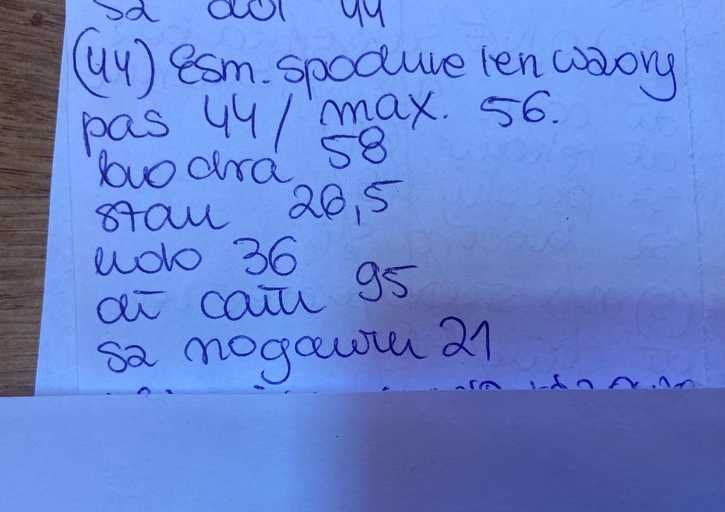 sz dół 44
(44) Esm. spodnie len wzory
pas 44 / max. 56.
biodra 58
stan 26,5
udo 36
dł całk 95
sz nogawki 21